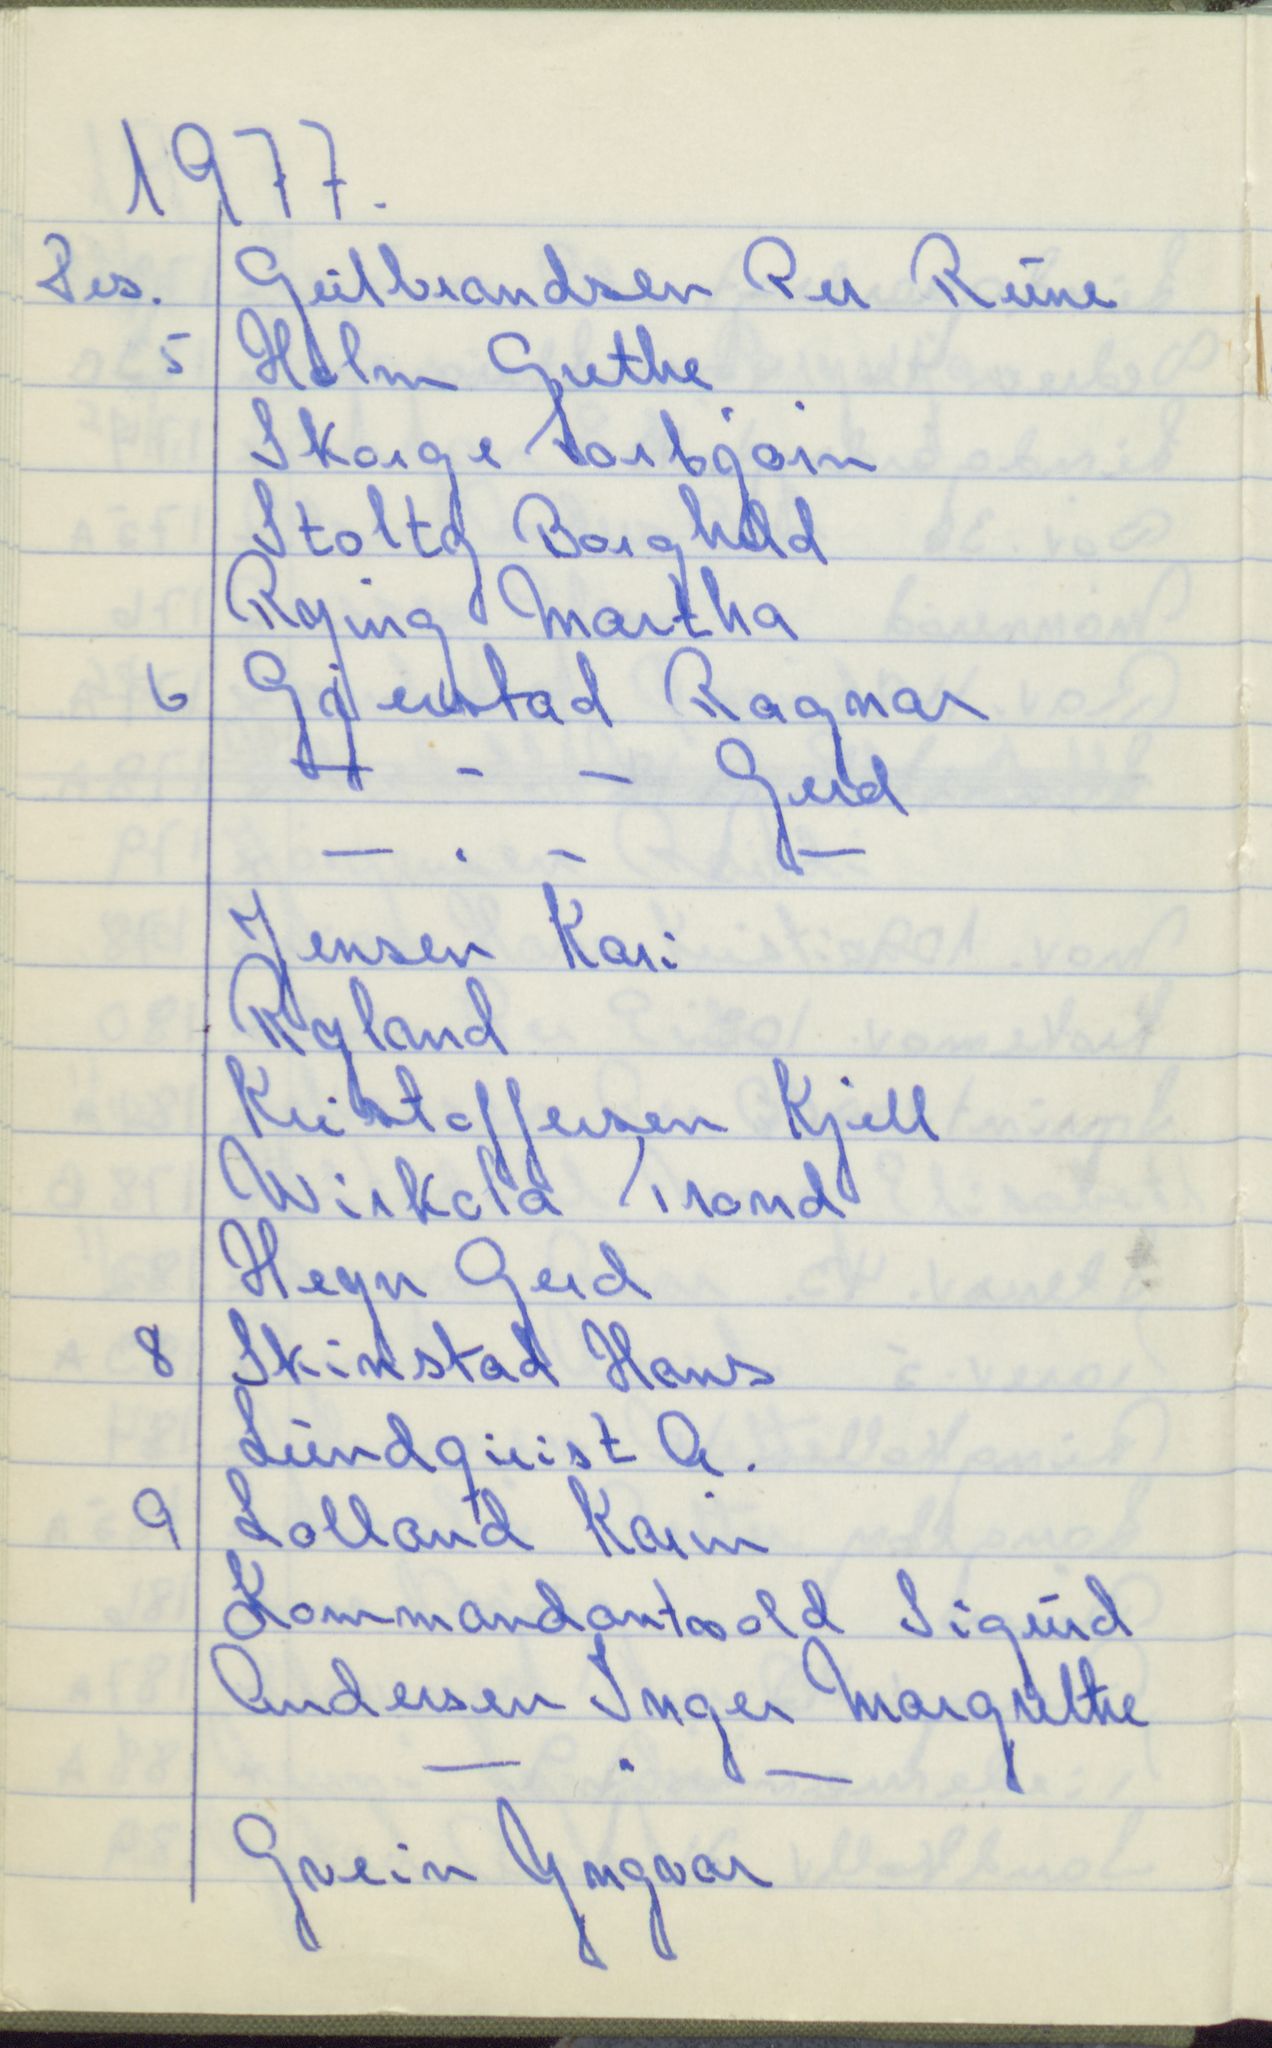 1977.
Des. Gulbrandsen Per Rune
5 Holm Grethe
Skorge Torbjørn
Stoltz Borghild
Rying Martha
6 Gjerstad Ragnar
— - — Gerd
— . - —
Jensen Kari
Ryland
Kristoffersen Kjell
Wirkola Trond
Heyn Gerd
8 Skinstad Hans
Lundquist A.
9 Lolland Karin
Kommandantvold Sigurd
Andersen Inger Margrethe
— . —
Gvein Yngvar